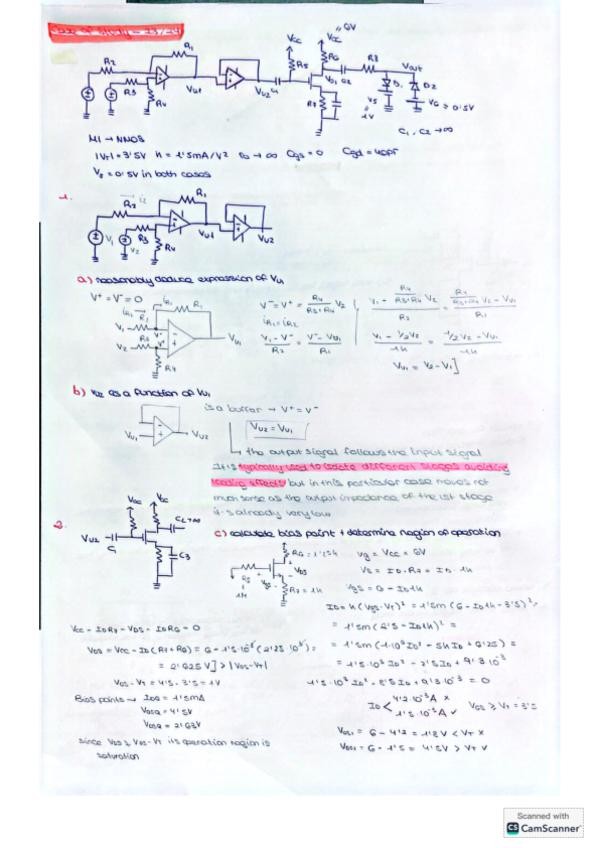 R1
R2
R3
R4
VU1
VU2
C1
Vcc
R5
Vcc
"6V
R6
R7
R8
Vout
D1
D2
V5
1V
V6 = 0'5V
C1, C2 → ∞
M1 → NMOS
|VT| = 3'5V K = 1'5mA/V² ro → ∞ Cgs = 0 Cgd = 40pF
Vγ = 0'5V in both cases
1.
i2
R1
R2
R3
R4
V1
V2
VU1
VU2
a) reasonably deduce expression of VU1
V+ = V- = 0
iR1
R1
V1
V2
R3
R4
VU1
V- = V+ = R4/(R3+R4) V2
iR1 = iR2
(V1 - V-)/R2 = (V- - VU1)/R1
(V1 - R4/(R3+R4) V2)/R2 = (R4/(R3+R4) V2 - VU1)/R1
(V1 - 1/2 V2)/1K = (1/2 V2 - VU1)/1K
VU1 = V2 - V1]
b) VU2 as a function of VU1
VU1
VU2
is a buffer → V+ = V-
VU2 = VU1
the output signal follows the input signal
It is typically used to isolate different stages avoiding
loading effects but in this particular case makes not
much sense as the output impedance of the 1st stage
it is already very low
2.
Vcc
Vcc
C2 → ∞
VU2
C1
C3
c) calculate bias point + determine region of operation
R6 = 1'25K
R5
1M
VDS
R7 = 1K
Vg = Vcc = 6V
VS = ID · R7 = ID · 1K
VGS = 6 - ID1K
ID = K (VGS - VT)² = 1'5m (6 - ID1K - 3'5)²
= 1'5m (2'5 - ID1K)² =
= 1'5m (1·10⁶ ID² - 5K ID + 6'25) =
= 1'5·10³ ID² - 7'5 ID + 9'3·10⁻³
1'5·10³ ID² - 8'5 ID + 9'3·10⁻³ = 0
ID < 4'2·10⁻³A x
1'5·10⁻³A ✓ VGS ≥ VT = 3'5
VGS1 = 6 - 4'2 = 1'8V < VT x
VGS2 = 6 - 1'5 = 4'5V > VT ✓
Vcc - IDR7 - VDS - IDR6 = 0
VDS = Vcc - ID (R7 + R6) = 6 - 1'5·10⁻³ (2'25·10³) =
= 2'625 V] > |VGS - VT|
VGS - VT = 4'5 - 3'5 = 1V
Bias points → IDQ = 1'5mA
VGSQ = 4'5V
VDSQ = 2'63V
since VDS ≥ VGS - VT its operation region is
saturation
Scanned with
CS CamScanner